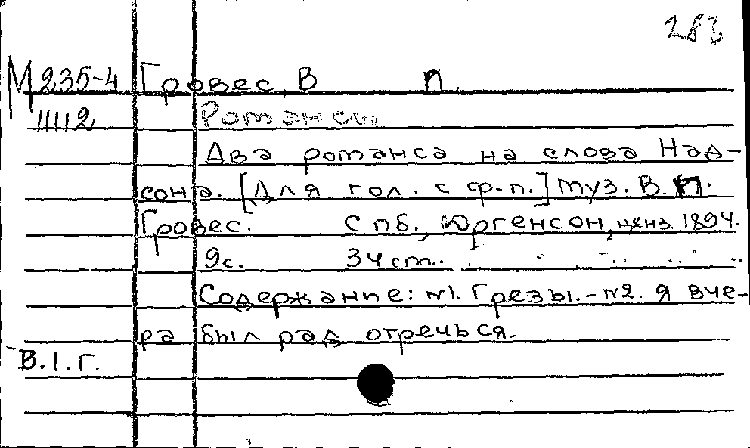 283
М 235-4 Гровес, В П.
11112 Романсы
Два романса на слова Над-
сона. [Для гол. с ф.п.] Муз. В. П.
Гровес. СПб., Юргенсон, ценз. 1894.
9с. 34cm.
Содержание: №1. Грезы. - №2. Я вче-
ра был рад отречься.
В.I.г.